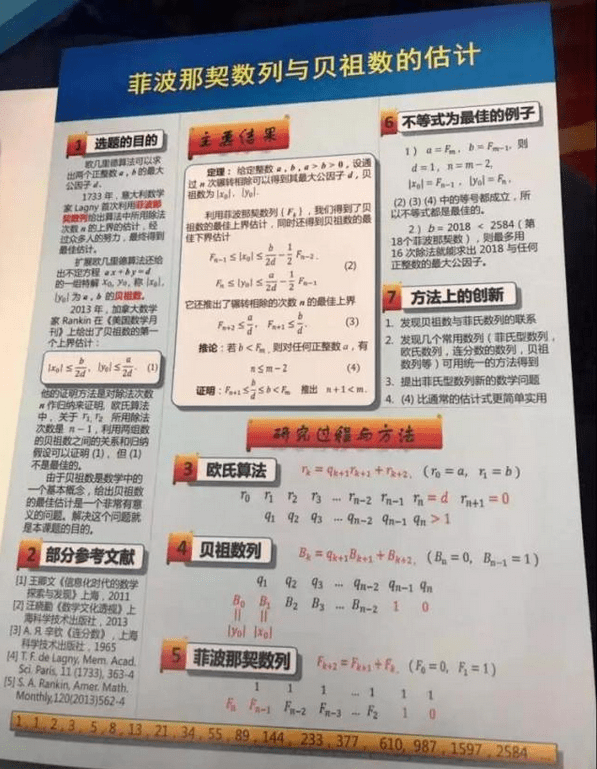 菲波那契数列与贝祖数的估计
1 选题的目的
欧几里德算法可以求
出两个正整数 a, b 的最大
公因子 d.
1733 年，意大利数学
家 Lagny 首次利用菲波那
契数列给出算法中所用除法
次数 n 的上界的估计，经
过众多人的努力，最终得到
最佳估计。
扩展欧几里德算法还给
出不定方程 ax + by = d
的一组特解 x₀, y₀, 称 |x₀|,
|y₀| 为 a, b 的贝祖数。
2013 年，加拿大数学
家 Rankin 在《美国数学月
刊》上给出了贝祖数的第一
个上界估计：
|x₀| ≤ b/2d, |y₀| ≤ a/2d. (1)
他的证明方法是对除法次数
n 作归纳来证明. 欧氏算法
中，关于 r₁, r₂ 所用除法
次数是 n − 1，利用两组数
的贝祖数之间的关系和归纳
假设可以证明 (1)、但 (1)
不是最佳的。
由于贝祖数是数学中的
一个基本概念，给出贝祖数
的最佳估计是一个非常有意
义的问题。解决这个问题就
是本课题的目的。
2 部分参考文献
[1] 王卿文《信息化时代的数学
探索与发现》上海，2011
[2] 汪晓勤《数学文化透视》上
海科学技术出版社，2013
[3] А. Я. 辛钦《连分数》，上海
科学技术出版社，1965
[4] T. F. de Lagny, Mem. Acad.
Sci. Paris, 11 (1733), 363-4
[5] S. A. Rankin, Amer. Math.
Monthly,120(2013)562-4
主要结果
定理： 给定整数 a, b, a > b > 0，设通
过 n 次辗转相除可以得到其最大公因子 d，贝
祖数为 |x₀|, |y₀|.
利用菲波那契数列 {Fₖ}，我们得到了贝
祖数的最佳上界估计，同时还得到贝祖数的最
佳下界估计
Fₙ₋₁ ≤ |x₀| ≤ b/2d − 1/2 Fₙ₋₂.
(2)
Fₙ ≤ |y₀| ≤ a/2d − 1/2 Fₙ₋₁
它还推出了辗转相除的次数 n 的最佳上界
Fₙ₊₂ ≤ a/d, Fₙ₊₁ ≤ b/d. (3)
推论：若 b < Fₘ, 则对任何正整数 a，有
n ≤ m − 2 (4)
证明：Fₙ₊₁ ≤ b/d ≤ b < Fₘ 推出 n + 1 < m.
6 不等式为最佳的例子
1） a = Fₘ, b = Fₘ₋₁, 则
d = 1, n = m − 2,
|x₀| = Fₙ₋₁, |y₀| = Fₙ,
(2) (3) (4) 中的等号都成立，所
以不等式都是最佳的。
2）b = 2018 < 2584（第
18个菲波那契数），则最多用
16 次除法就能求出 2018 与任何
正整数的最大公因子。
7 方法上的创新
1. 发现贝祖数与菲氏数列的联系
2. 发现几个常用数列（菲氏型数列，
欧氏数列，连分数的数列，贝祖
数列等）可用统一的方法得到
3. 提出菲氏型数列新的数学问题
4. (4) 比通常的估计式更简单实用
研究过程与方法
3 欧氏算法 rₖ = qₖ₊₁rₖ₊₁ + rₖ₊₂, (r₀ = a, r₁ = b)
r₀ r₁ r₂ r₃ ... rₙ₋₂ rₙ₋₁ rₙ = d rₙ₊₁ = 0
q₁ q₂ q₃ ... qₙ₋₂ qₙ₋₁ qₙ > 1
4 贝祖数列 Bₖ = qₖ₊₁Bₖ₊₁ + Bₖ₊₂, (Bₙ = 0, Bₙ₋₁ = 1)
q₁ q₂ q₃ ... qₙ₋₂ qₙ₋₁ qₙ
B₀ B₁ B₂ B₃ ... Bₙ₋₂ 1 0
|| ||
|y₀| |x₀|
5 菲波那契数列 Fₖ₊₂ = Fₖ₊₁ + Fₖ, (F₀ = 0, F₁ = 1)
1 1 1 ... 1 1 1
Fₙ Fₙ₋₁ Fₙ₋₂ Fₙ₋₃ ... F₂ 1 0
1, 1, 2, 3, 5, 8, 13, 21, 34, 55, 89, 144, 233, 377, 610, 987, 1597, 2584 ...